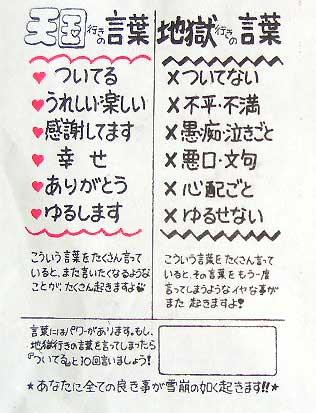 天国行きの言葉
♥ついてる
♥うれしい・楽しい
♥感謝してます
♥幸せ
♥ありがとう
♥ゆるします
こういう言葉をたくさん言って
いると、また言いたくなるような
ことが、たくさん起きますよ
地獄行きの言葉
×ついてない
×不平・不満
×愚・痴・泣きごと
×悪口・文句
×心配ごと
×ゆるせない
こういう言葉をたくさん言って
いると、その言葉をもう一度
言ってしまうようなイヤな事が
また 起きますよ!
言葉にはパワーがあります。もし、
地獄行きの言葉を言ってしまったら
「ついてる」と10回言いましょう!
★あなたに全ての良き事が雪崩の如く起きます!!★